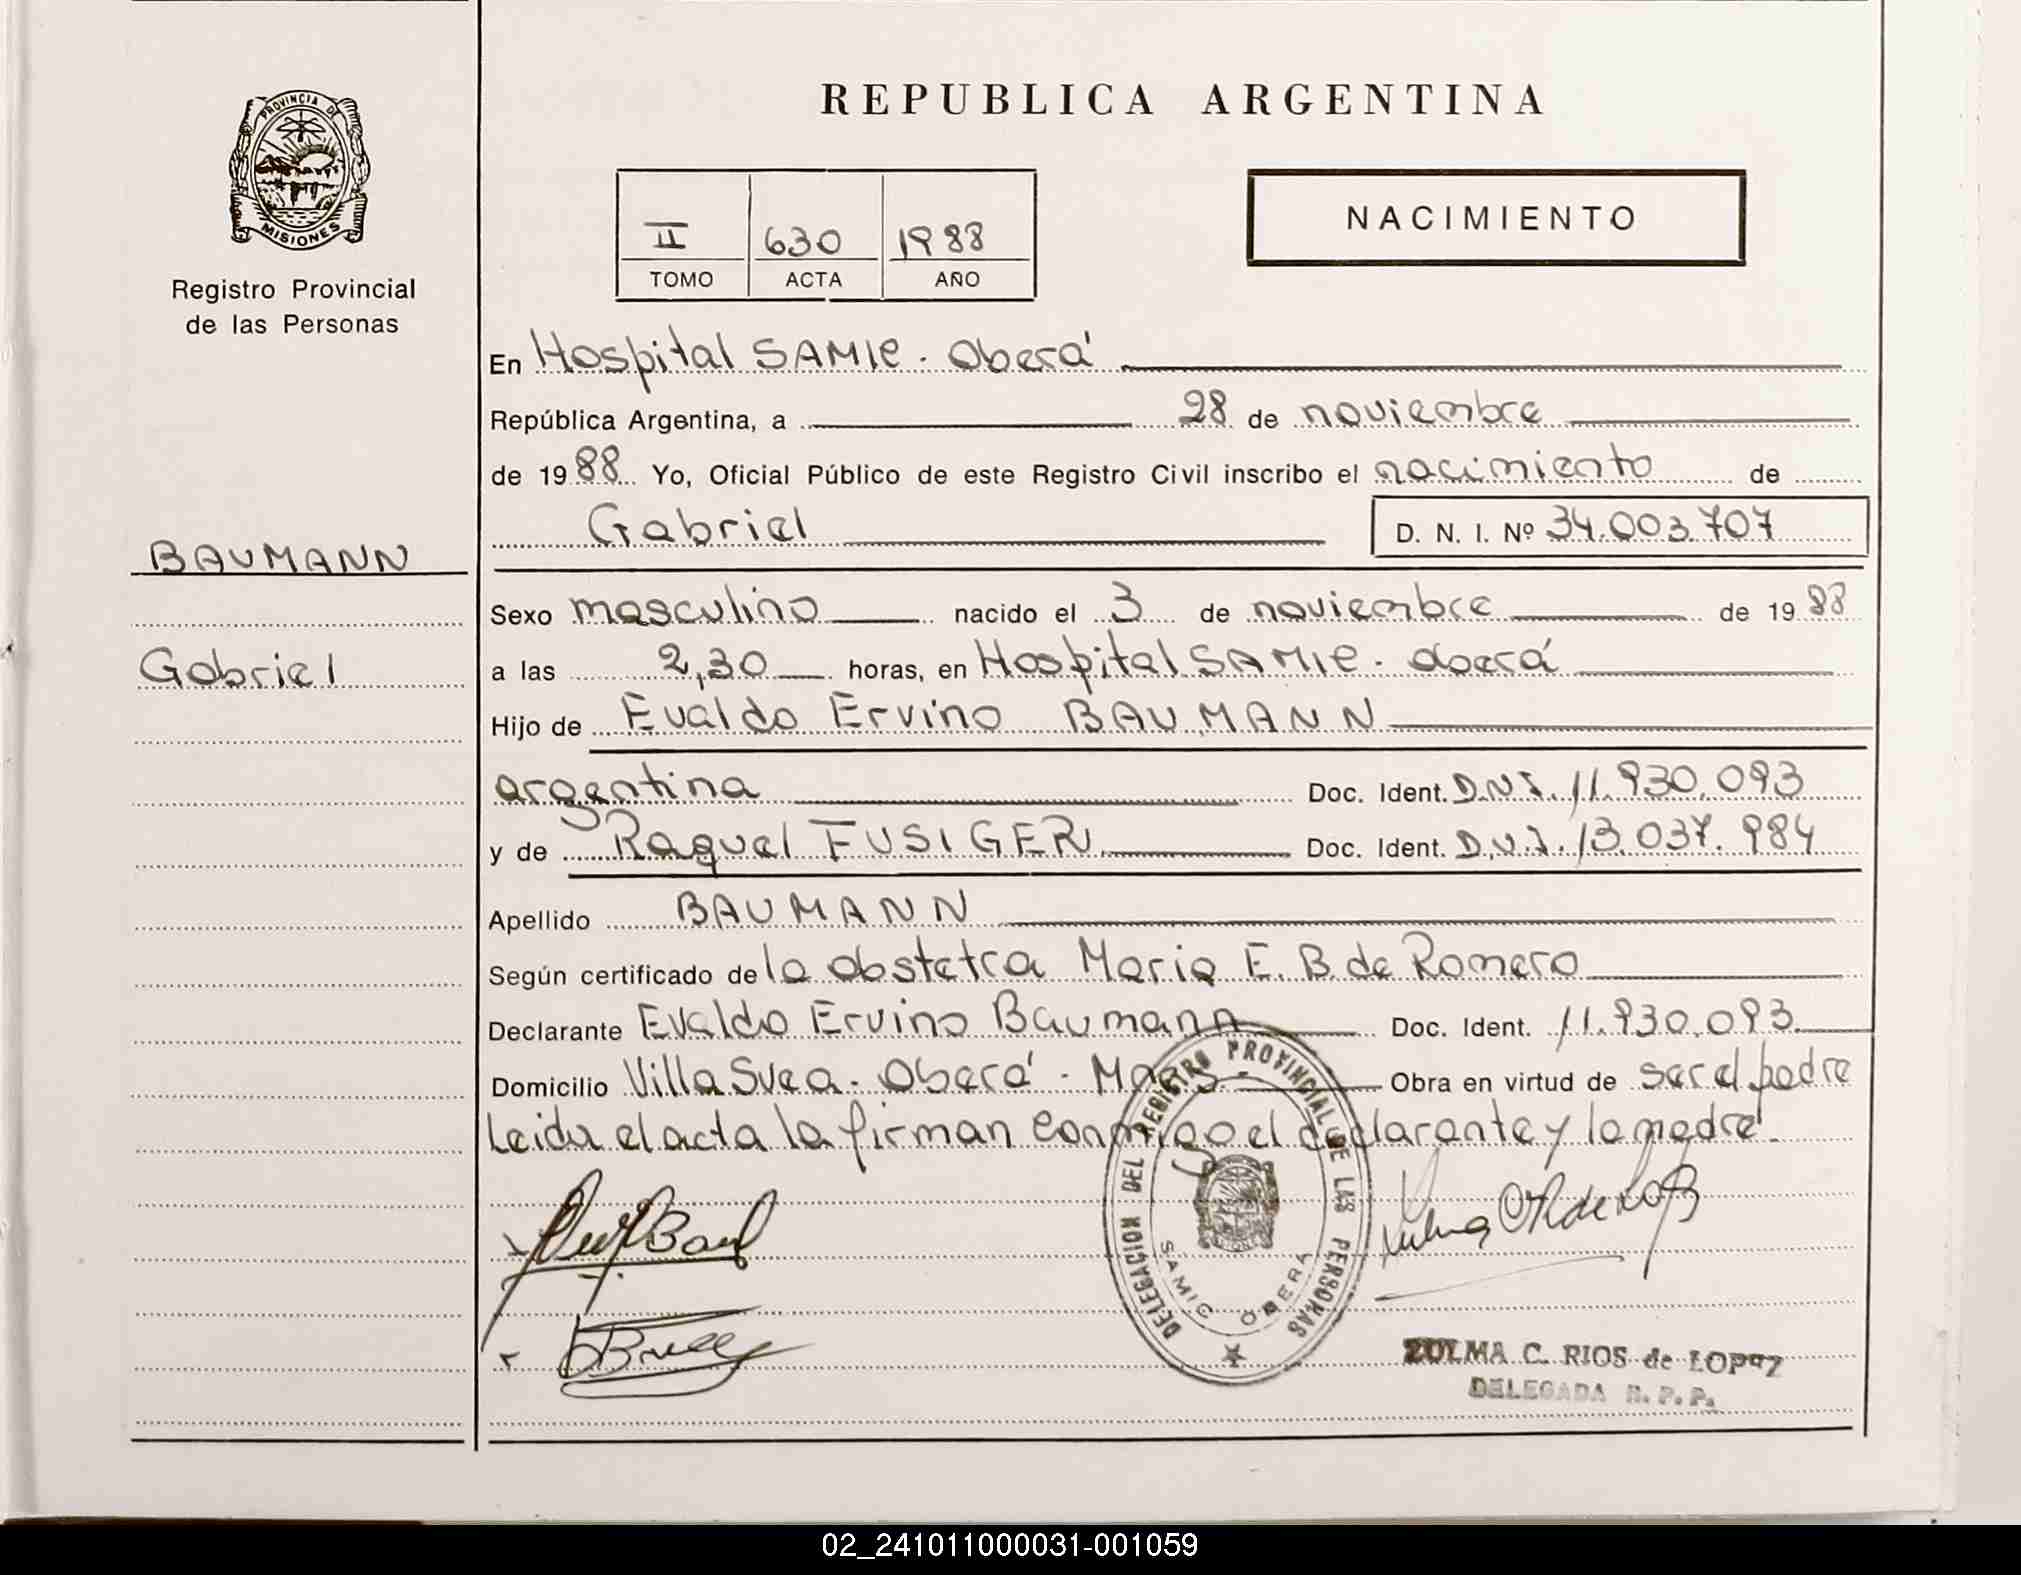 REPUBLICA ARGENTINA
PROVINCIA DE
MISIONES
Registro Provincial
de las Personas
II 630 1988
TOMO ACTA AÑO
NACIMIENTO
En Hospital SAMIC. Oberá
República Argentina, a 28 de noviembre
de 1988 Yo, Oficial Público de este Registro Civil inscribo el nacimiento de
Gabriel D. N. I. Nº 34.003.707
BAUMANN
Gabriel
Sexo masculino nacido el 3 de noviembre de 1988
a las 2,30 horas, en Hospital SAMIC. Oberá
Hijo de Evaldo Ervino BAUMANN
argentina Doc. Ident. D.N.I. 11.930.093
y de Raquel FUSIGER Doc. Ident. D.N.I. 13.037.984
Apellido BAUMANN
Según certificado de la obstetra Maria E. B. de Romero
Declarante Evaldo Ervino Baumann Doc. Ident. 11.930.093
Domicilio Villa Svea. Oberá - Mnes. Obra en virtud de ser el padre
Leida el acta la firman conmigo el declarante y la madre.
DELEGACION DEL REGISTRO PROVINCIAL DE LAS PERSONAS
SAMIC OBERA
ZULMA C. RIOS de LOPEZ
DELEGADA R. P. P.
02_241011000031-001059